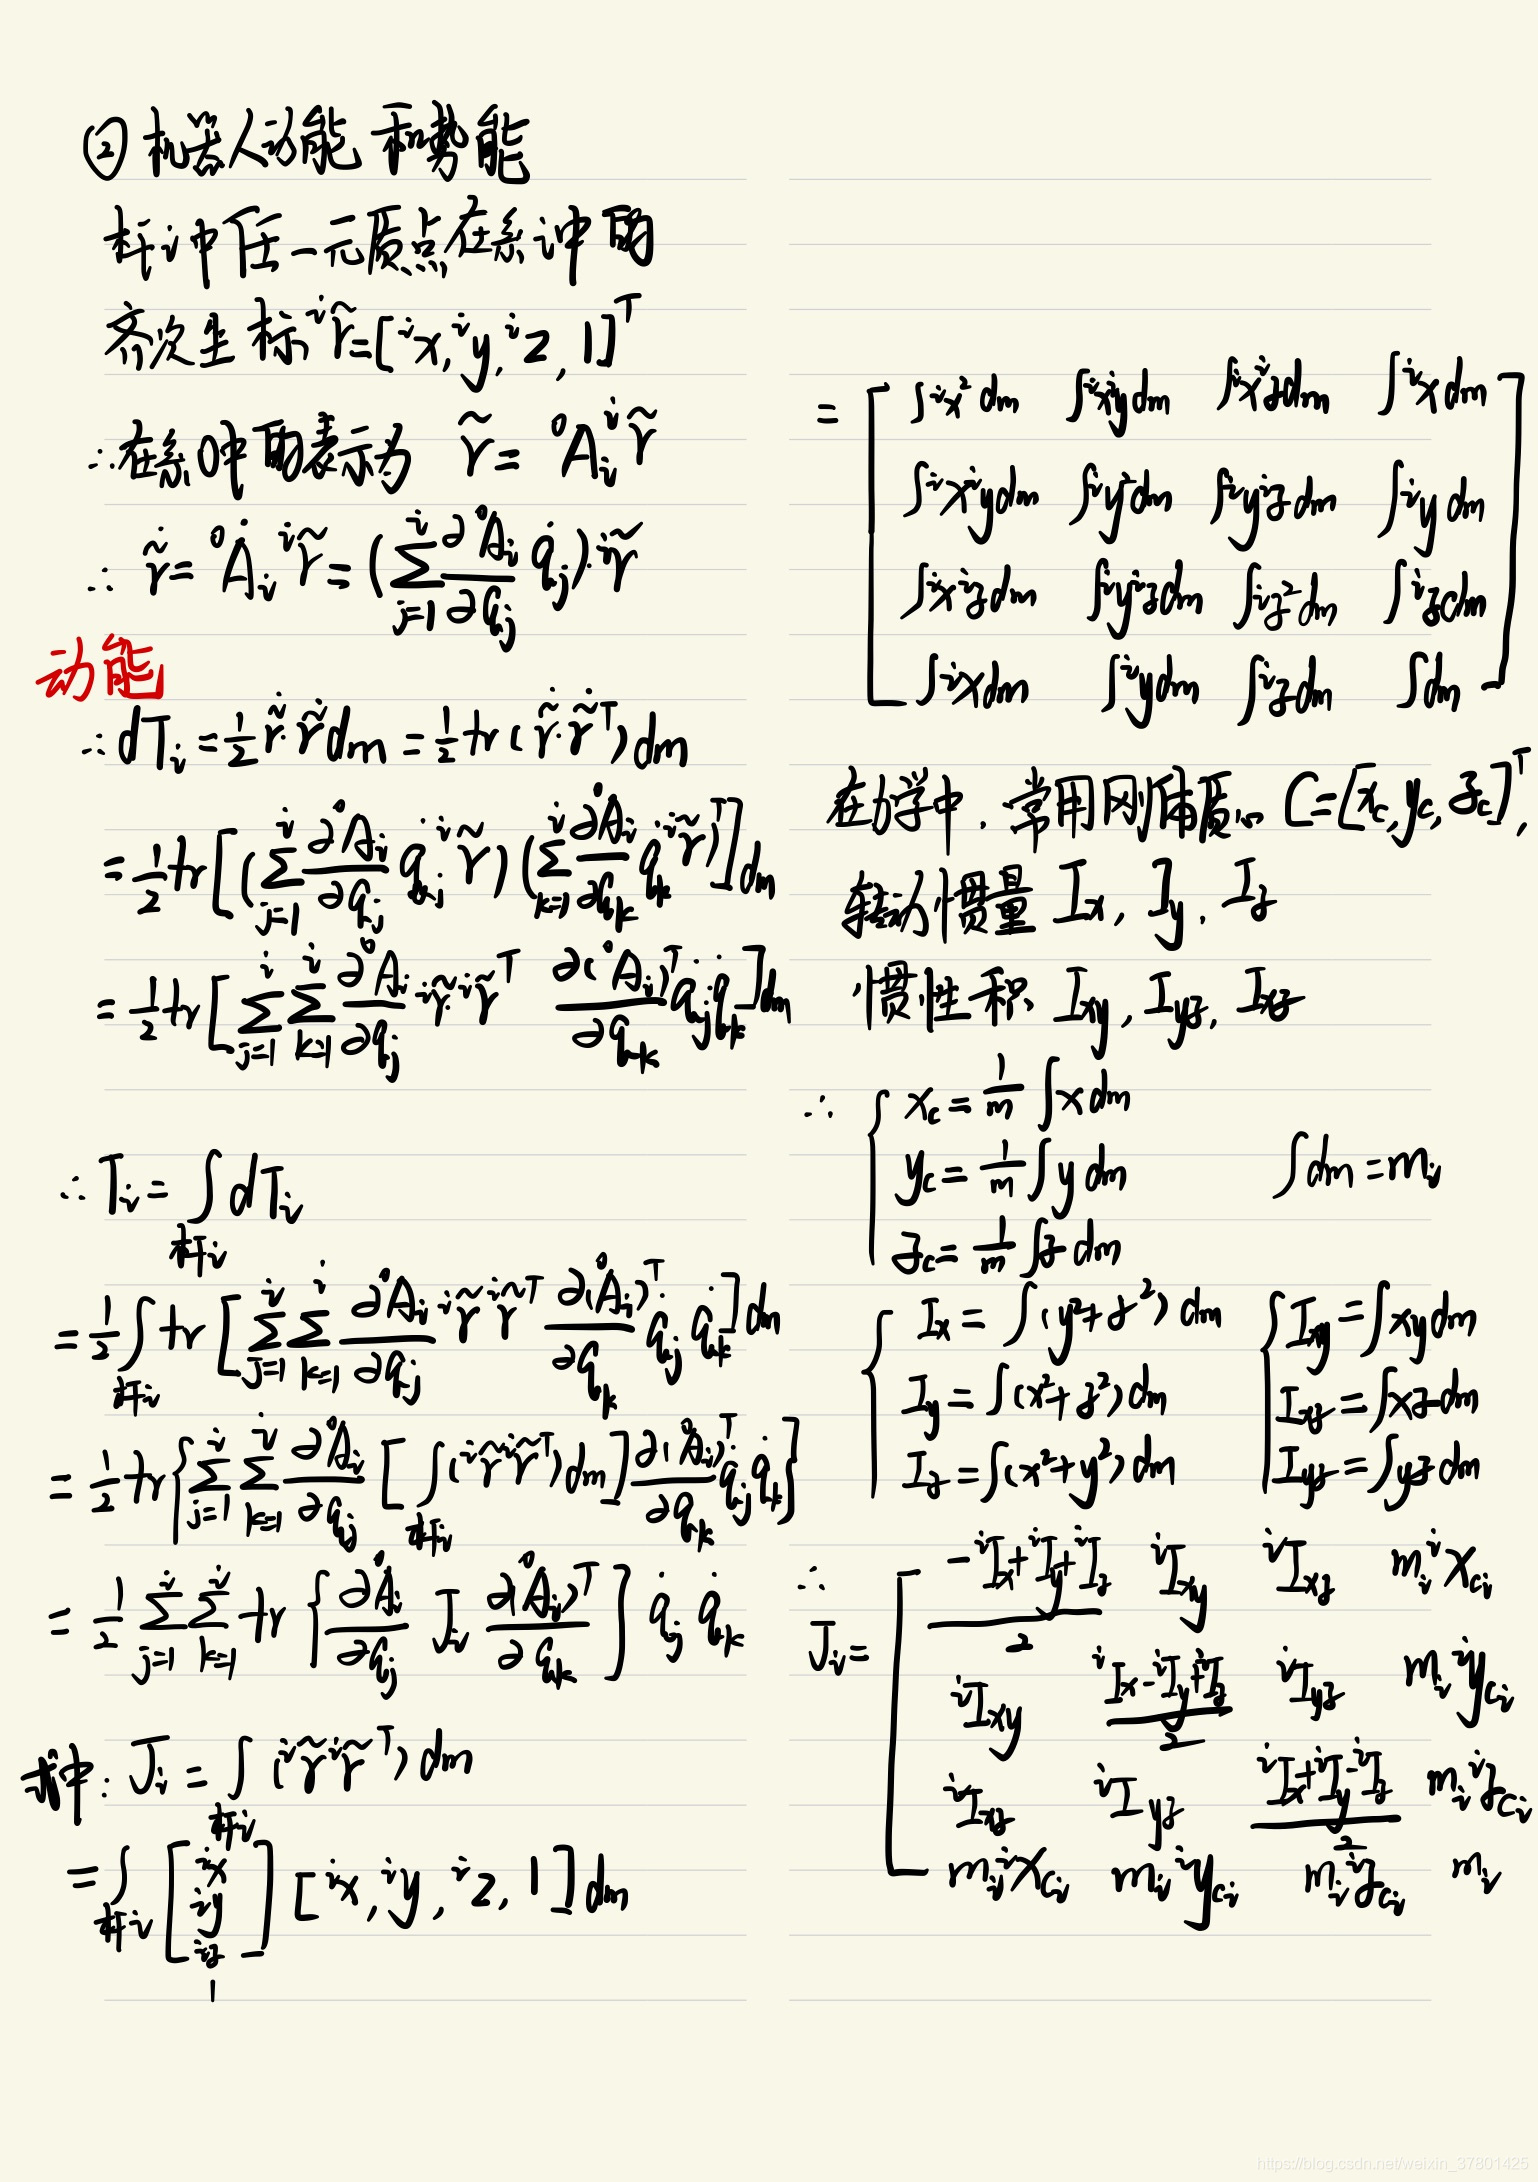 ② 机器人动能和势能
杆i中任一元质点在系i中的
齐次坐标 ⁱr̃=[ⁱx, ⁱy, ⁱz, 1]ᵀ
∴在系0中的表示为 r̃ = ⁰Aᵢ ⁱr̃
∴ \dot{r̃} = ⁰Ȧᵢ ⁱr̃ = (∑_{j=1}^{i} ∂⁰Aᵢ/∂q_j q̇_j)·ⁱr̃
动能
∴ dTᵢ = 1/2 \dot{r̃}·\dot{r̃} dm = 1/2 tr(\dot{r̃}·\dot{r̃}ᵀ) dm
= 1/2 tr[(∑_{j=1}^{i} ∂⁰Aᵢ/∂q_j q̇_j ⁱr̃)(∑_{k=1}^{i} ∂⁰Aᵢ/∂q_k q̇_k ⁱr̃)ᵀ] dm
= 1/2 tr[∑_{j=1}^{i} ∑_{k=1}^{i} ∂⁰Aᵢ/∂q_j ⁱr̃ ⁱr̃ᵀ ∂(⁰Aᵢ)ᵀ/∂q_k q̇_j q̇_k] dm
∴ Tᵢ = ∫_{杆i} dTᵢ
= 1/2 ∫_{杆i} tr[∑_{j=1}^{i} ∑_{k=1}^{i} ∂⁰Aᵢ/∂q_j ⁱr̃ ⁱr̃ᵀ ∂(⁰Aᵢ)ᵀ/∂q_k q̇_j q̇_k] dm
= 1/2 tr{∑_{j=1}^{i} ∑_{k=1}^{i} ∂⁰Aᵢ/∂q_j [∫_{杆i} (ⁱr̃ ⁱr̃ᵀ) dm] ∂(⁰Aᵢ)ᵀ/∂q_k q̇_j q̇_k}
= 1/2 ∑_{j=1}^{i} ∑_{k=1}^{i} tr{∂⁰Aᵢ/∂q_j Jᵢ ∂(⁰Aᵢ)ᵀ/∂q_k} q̇_j q̇_k
式中: Jᵢ = ∫_{杆i} (ⁱr̃ ⁱr̃ᵀ) dm
= ∫_{杆i} [ⁱx ⁱy ⁱz 1] [ⁱx, ⁱy, ⁱz, 1] dm
= [ ∫ⁱx²dm ∫ⁱxⁱydm ∫ⁱxⁱzdm ∫ⁱxdm
∫ⁱxⁱydm ∫ⁱy²dm ∫ⁱyⁱzdm ∫ⁱydm
∫ⁱxⁱzdm ∫ⁱyⁱzdm ∫ⁱz²dm ∫ⁱzdm
∫ⁱxdm ∫ⁱydm ∫ⁱzdm ∫dm ]
在力学中, 常用刚体质心 C=[x_c, y_c, z_c]ᵀ,
转动惯量 I_x, I_y, I_z
惯性积 I_xy, I_yz, I_xz
∴ { x_c = 1/m ∫xdm
y_c = 1/m ∫ydm ∫dm = mᵢ
z_c = 1/m ∫zdm
{ I_x = ∫(y²+z²)dm { I_xy = ∫xydm
I_y = ∫(x²+z²)dm I_xz = ∫xzdm
I_z = ∫(x²+y²)dm I_yz = ∫yzdm
∴ Jᵢ = [ (-ⁱI_x+ⁱI_y+ⁱI_z)/2 ⁱI_xy ⁱI_xz mᵢⁱx_{ci}
ⁱI_xy (ⁱI_x-ⁱI_y+ⁱI_z)/2 ⁱI_yz mᵢⁱy_{ci}
ⁱI_xz ⁱI_yz (ⁱI_x+ⁱI_y-ⁱI_z)/2 mᵢⁱz_{ci}
mᵢⁱx_{ci} mᵢⁱy_{ci} mᵢⁱz_{ci} mᵢ
https://blog.csdn.net/weixin_37801425